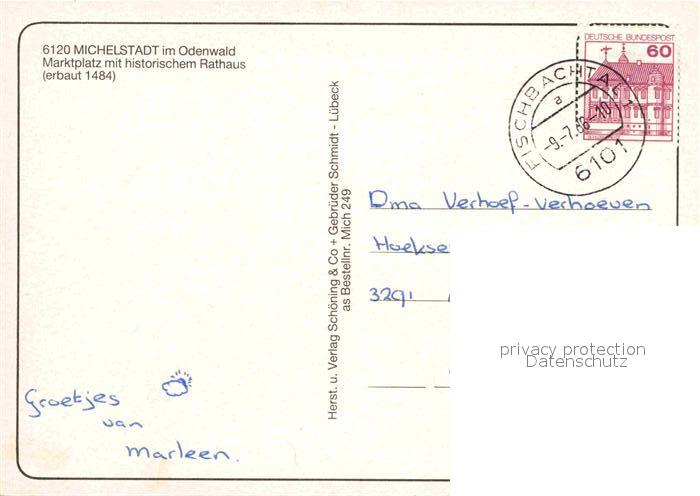 6120 MICHELSTADT im Odenwald
Marktplatz mit historischem Rathaus
(erbaut 1484)
DEUTSCHE BUNDESPOST
60
FISCHBACHTAL 1
a
-9.-7.86-10
6101
Herst. u. Verlag Schöning & Co + Gebrüder Schmidt - Lübeck
as Bestellnr. Mich 249
Dma Verhoef-Verhoeven
Hoekse
3291
privacy protection
Datenschutz
Groetjes
van
Marleen.